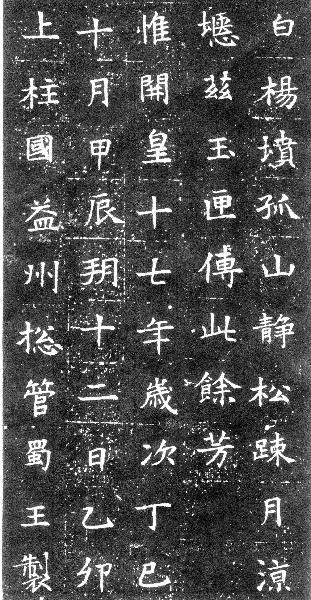 白楊墳孤山静松踈月凉
壝茲玉匣傅此餘芳
惟開皇十七年歳次丁巳
十月甲辰朔十二日乙卯
上柱國益州揔管蜀王製